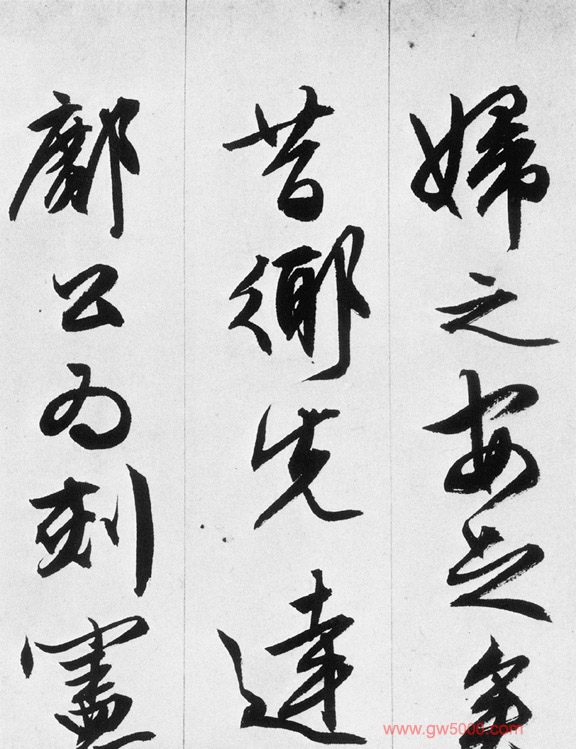 婦之安之
昔鄉先達
公為刻憲
www.gw5000.com